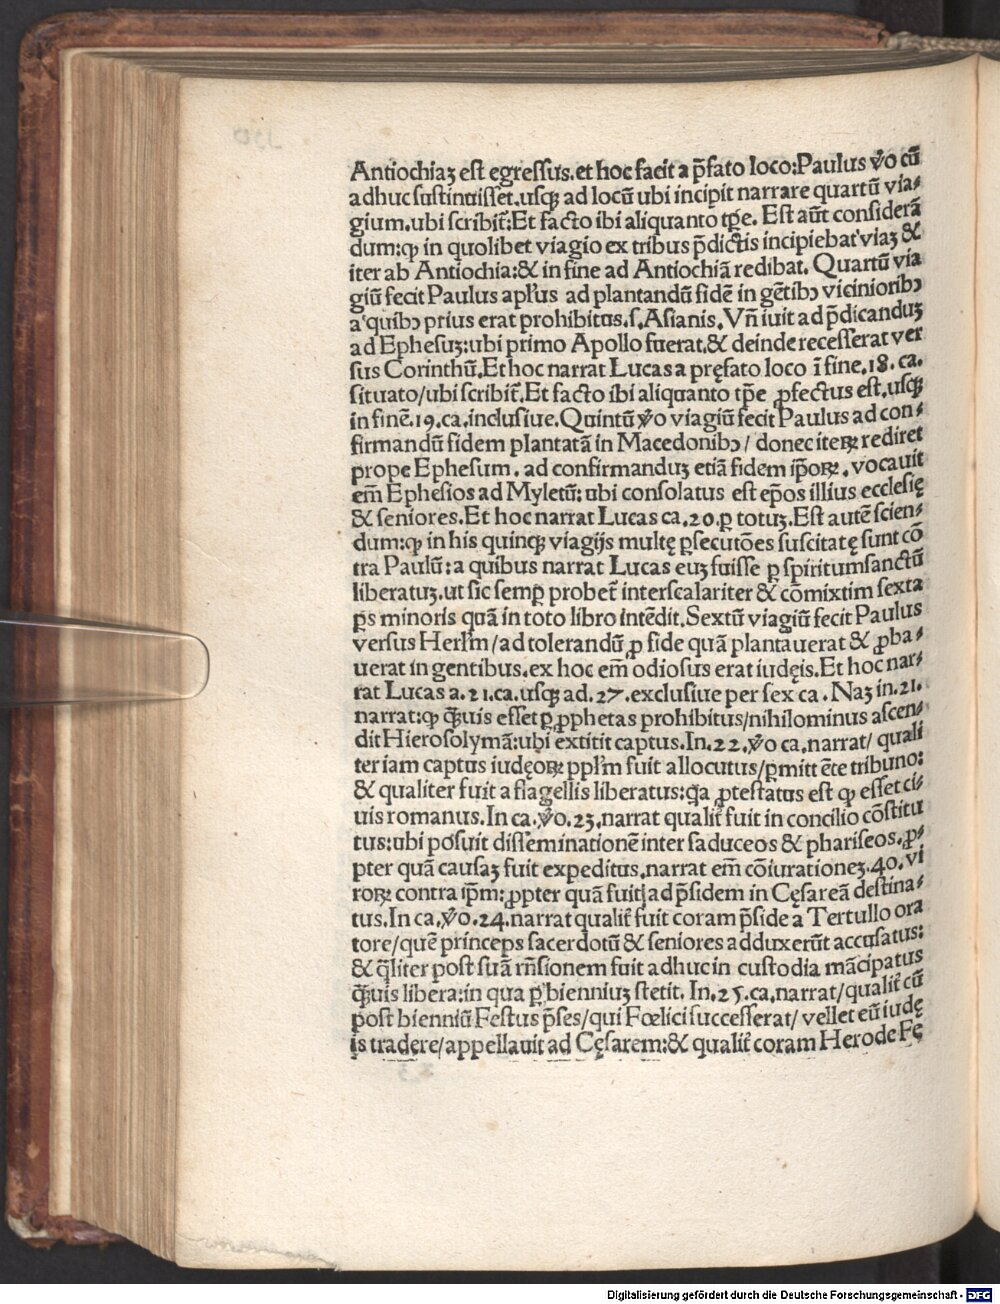 Antiochiaʒ est egressus.et hoc facit a p̄fato loco:Paulus v̊o cū
adhuc sustinuisset.usqꝫ ad locū ubi incipit narrare quartū via⸗
gium.ubi scribit̄:Et facto ibi aliquanto tp̄e. Est aūt considerā
dum:ꝙ in quolibet viagio ex tribus p̄dictis incipiebat viaʒ &
iter ab Antiochia:& in fine ad Antiochiā redibat. Quartū via
giū fecit Paulus apl'us ad plantandū fidē in gētibꝰ vicinioribꝰ
a quibꝰ prius erat prohibitus.s.Asianis.Vn̄ iuit ad p̄dicanduʒ
ad Ephesuʒ:ubi primo Apollo fuerat.& deinde recesserat ver
sus Corinthū.Et hoc narrat Lucas a pręfato loco ī fine.18.ca.
situato/ubi scribit̄.Et facto ibi aliquanto tp̄e ꝓfectus est.usqꝫ
in finē.19.ca.inclusiue.Quintū v̊o viagiū fecit Paulus ad con⸗
firmandū fidem plantatā in Macedonibꝰ/ donec iteꝝ rediret
prope Ephesum. ad confirmanduʒ etiā fidem ip̄oꝝ. vocauit
em̄ Ephesios ad Myletū: ubi consolatus est ep̄os illius ecclesię
& seniores.Et hoc narrat Lucas ca.20.ꝑ totuʒ.Est autē scien⸗
dum:ꝙ in his quinqꝫ viagijs multę ꝑsecutōes suscitatę sunt cō
tra Paulū: a quibus narrat Lucas euʒ fuisse ꝑ spiritumsanctū
liberatuʒ.ut sic semꝑ probet̄ interscalariter & cōmixtim sexta
ꝑs minoris quā in toto libro intēdit.Sextū viagiū fecit Paulus
versus Herl'm/ad tolerandū ꝓ fide quā plantauerat & ꝓba⸗
uerat in gentibus.ex hoc em̄ odiosus erat iudęis.Et hoc nar⸗
rat Lucas a.21.ca.usqꝫ ad.27.exclusiue per sex ca. Naʒ in.21.
narrat:ꝙ q̄uis esset ꝑ ꝓphetas prohibitus/nihilominus ascen⸗
dit Hierosolymā:ubi extitit captus.In.22.v̊o ca.narrat/ quali
ter iam captus iudęoꝝ ppl'm fuit allocutus/ꝑmittēte tribuno:
& qualiter fuit a flagellis liberatus:q̄a ꝓtestatus est ꝙ esset ci⸗
uis romanus.In ca.v̊o.23.narrat qualit̄ fuit in concilio cōstitu
tus:ubi posuit disseminationē inter saduceos & phariseos.ꝓ⸗
pter quā causaʒ fuit expeditus.narrat em̄ cōiurationeʒ.40.vi
roꝝ contra ip̄m:ꝓpter quā fuit ad p̄sidem in Cęsareā destina⸗
tus.In ca.v̊o.24.narrat qualit̄ fuit coram p̄side a Tertullo ora
tore/quē princeps sacerdotū & seniores adduxerūt accusatus:
& q̄liter post suā rn̄sionem fuit adhuc in custodia mācipatus
q̄uis libera:in qua ꝑ bienniuʒ stetit. In.25.ca.narrat/qualit̄ cū
post bienniū Festus p̄ses/qui Fœlici successerat/ vellet eū iudę
is tradere/appellauit ad Cęsarem:& qualit̄ coram Herode Fę
Digitalisierung gefördert durch die Deutsche Forschungsgemeinschaft - DFG